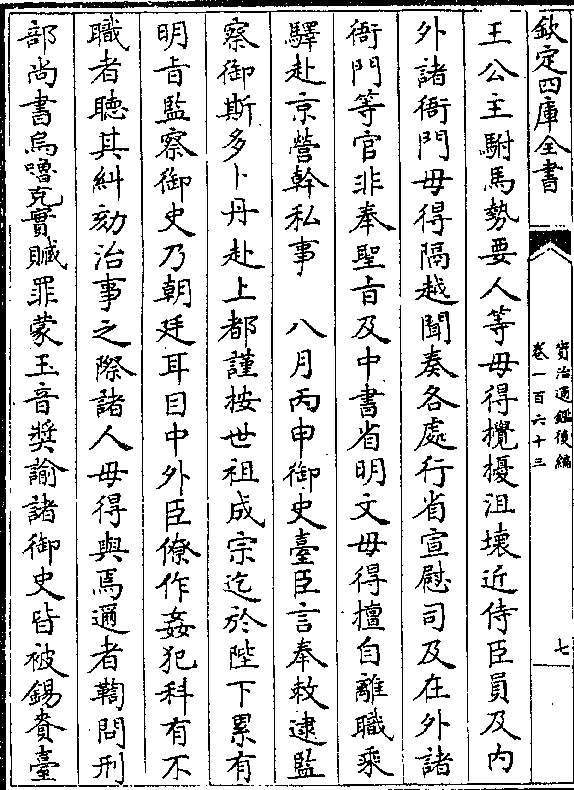 欽定四庫全書
資治通鑑後編
卷一百六十三
七
王公主駙馬勢要人等毋得攪擾沮壞近侍臣員及内
外諸衙門毋得隔越聞奏各處行省宣慰司及在外諸
衙門等官非奉聖旨及中書省明文毋得擅自離職乘
驛赴京營幹私事　八月丙申御史臺臣言奉敕逮監
察御斯多卜丹赴上都謹按世祖成宗迄於陛下累有
明旨監察御史乃朝廷耳目中外臣僚作姦犯科有不
職者聽其糾劾治事之際諸人毋得與焉邇者鞫問刑
部尚書烏嚕克實贓罪蒙玉音奬諭諸御史皆被錫賚臺